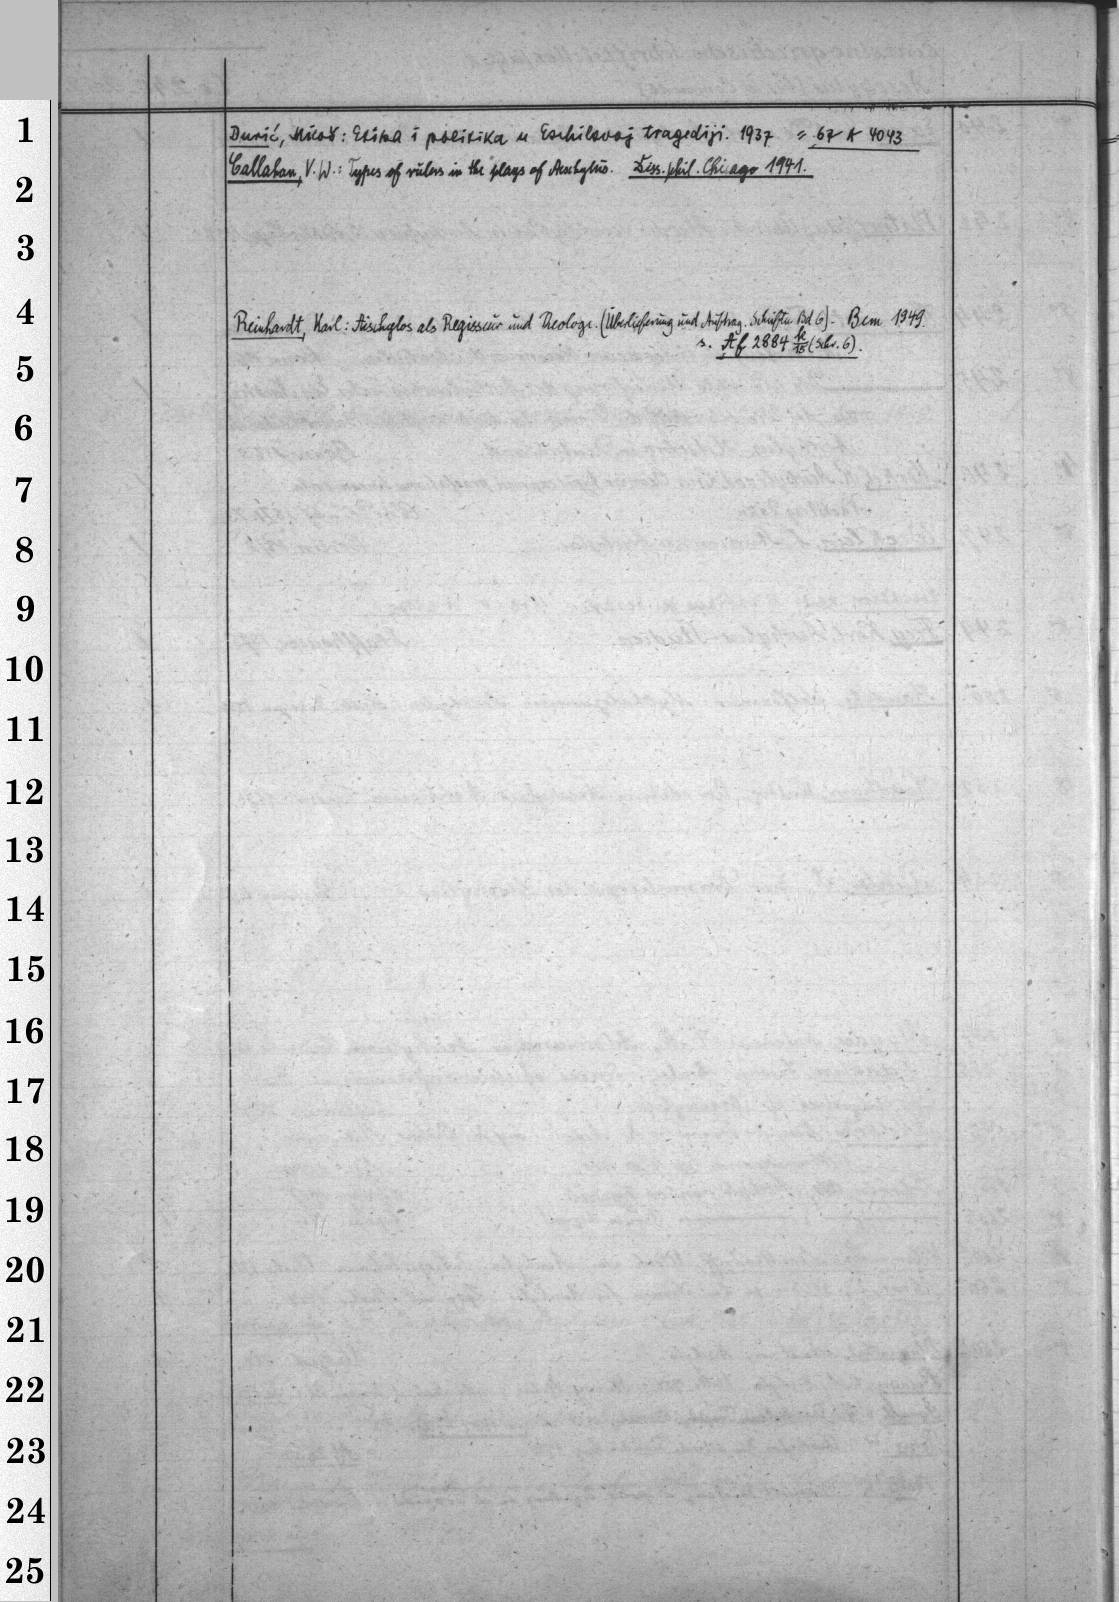 1
Durić, Miloš: Etika i politika u Eschilovoj tragediji. 1937 = 67 A 4043
Callahan, V. W.: Types of rulers in the plays of Aeschylus. Diss. phil. Chicago 1941.
2
3
4
Reinhardt, Karl: Aischylos als Regisseur und Theologe. (Überlieferung und Auftrag. Schriften Bd 6). Bern 1949.
s. Af 2884 k/15 (Schr. 6).
5
6
7
8
9
10
11
12
13
14
15
16
17
18
19
20
21
22
23
24
25